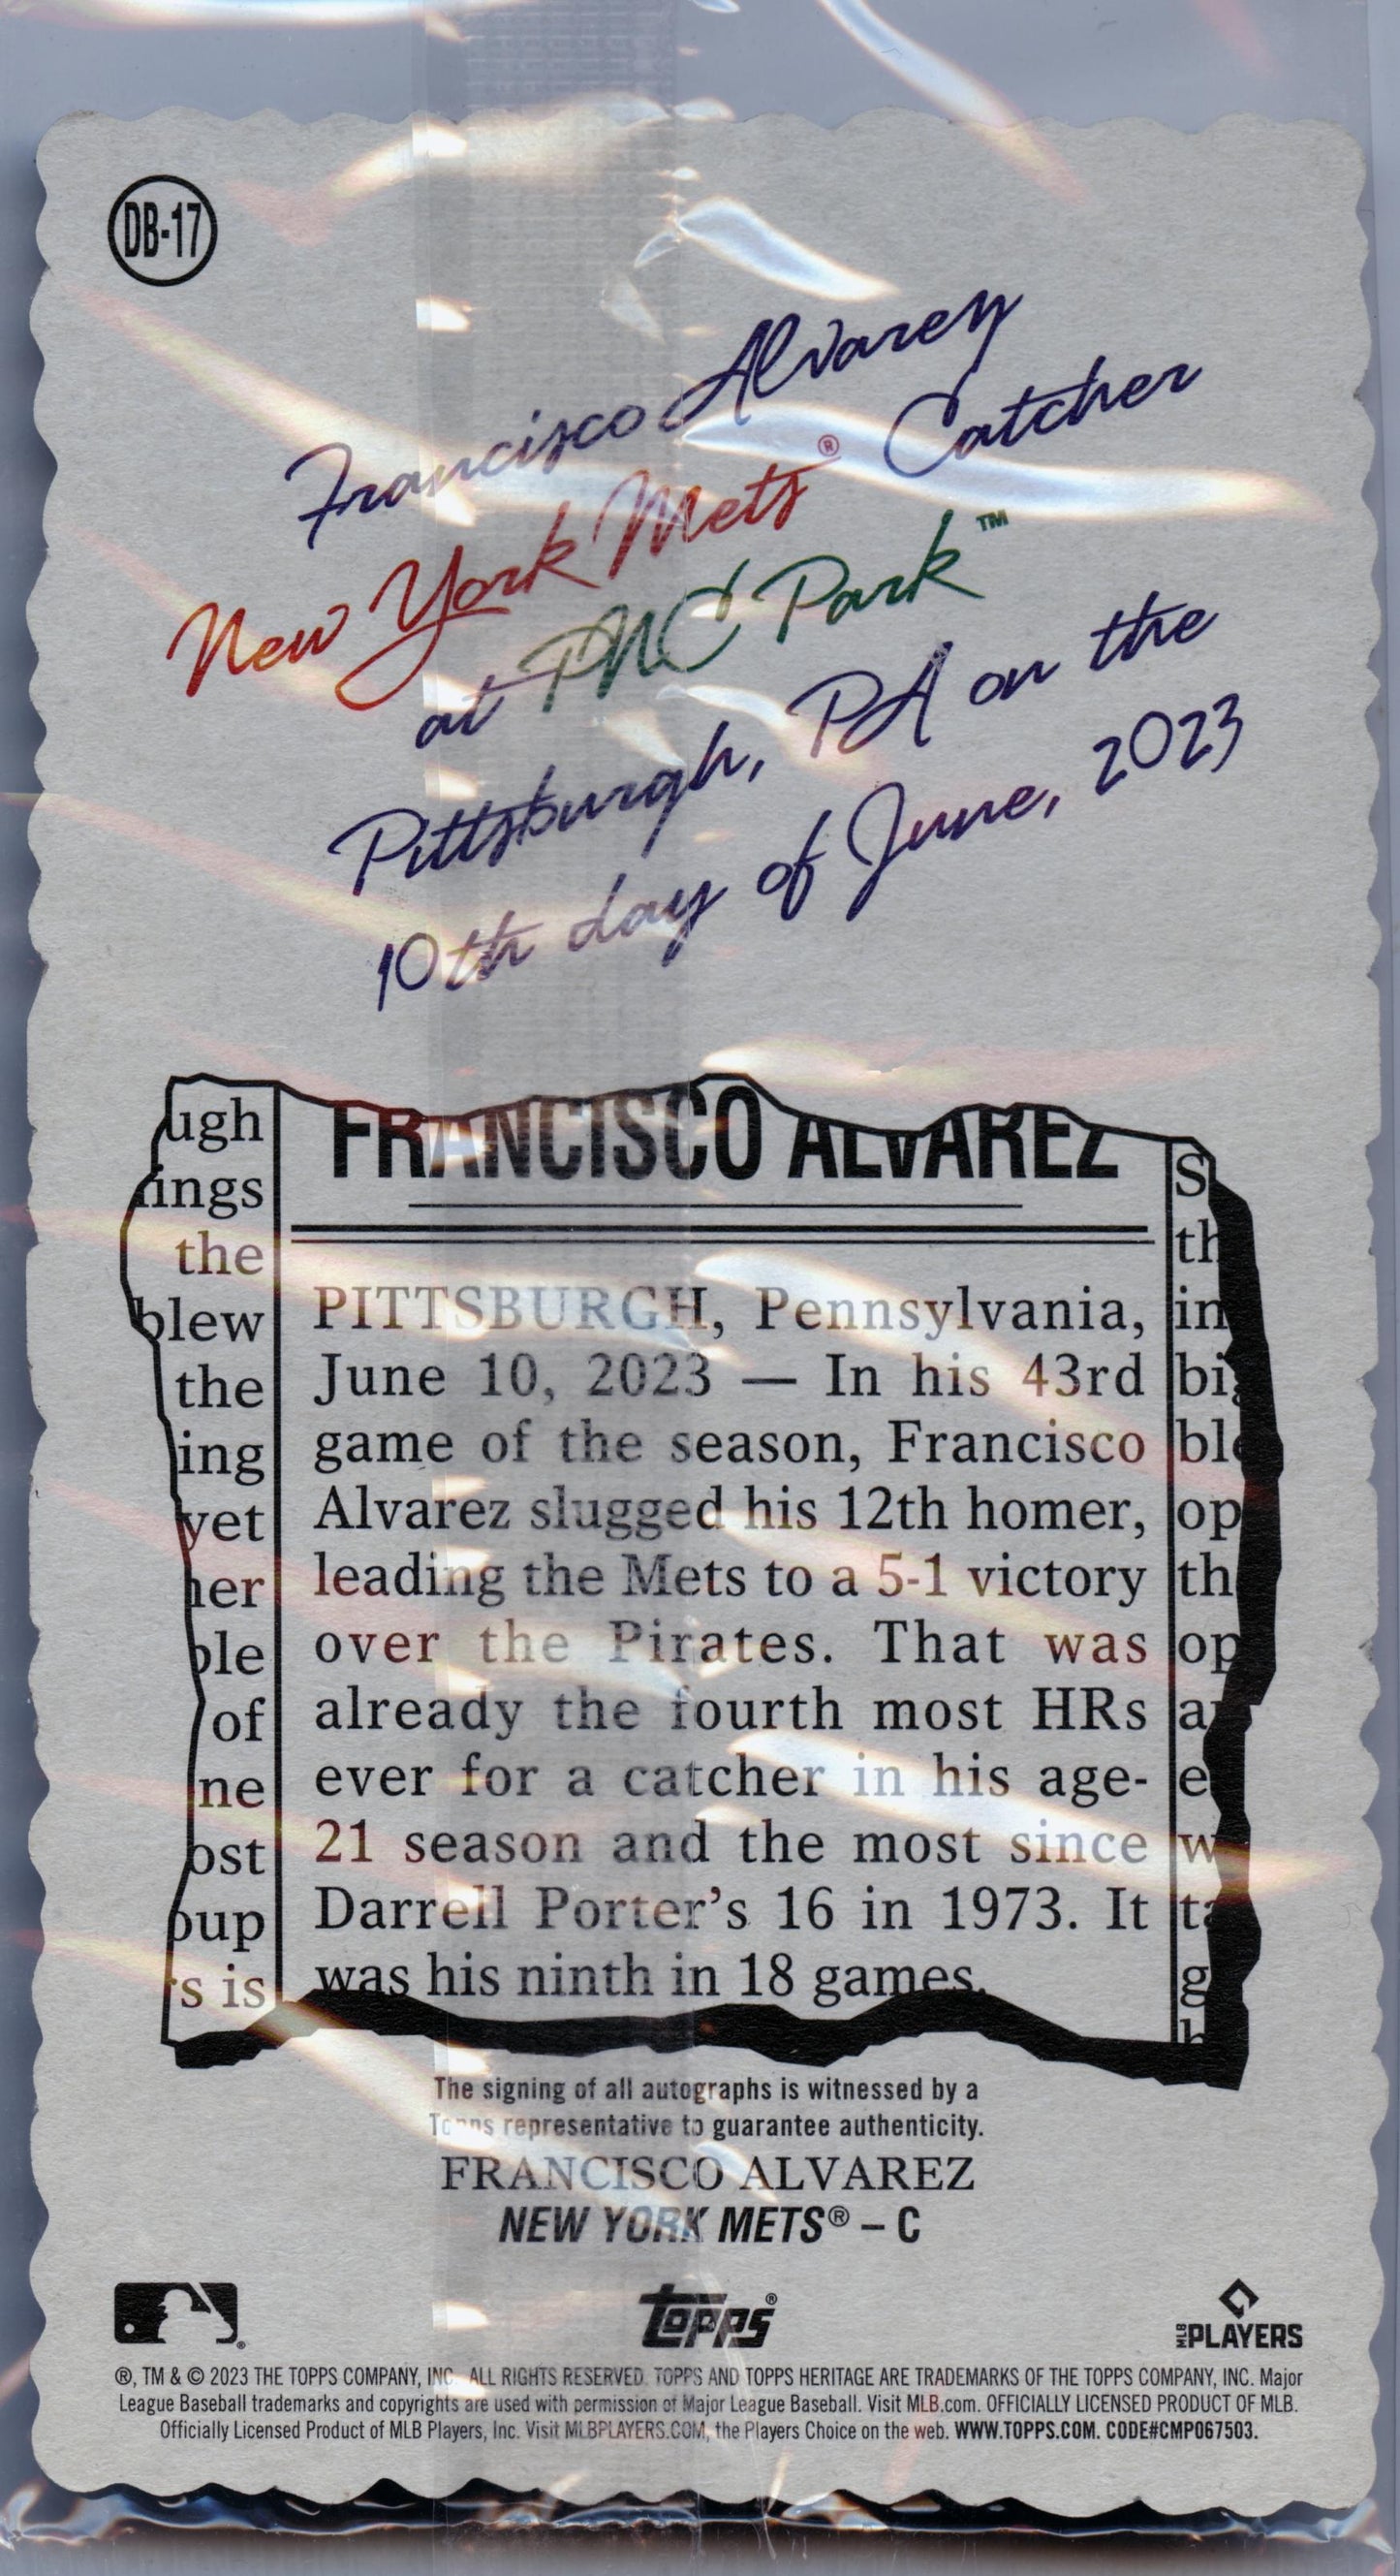 DB-17
Francisco Alvarez
New York Mets® Catcher
at PNC Park™
Pittsburgh, PA on the
10th day of June, 2023
FRANCISCO ALVAREZ
PITTSBURGH, Pennsylvania,
June 10, 2023 — In his 43rd
game of the season, Francisco
Alvarez slugged his 12th homer,
leading the Mets to a 5-1 victory
over the Pirates. That was
already the fourth most HRs
ever for a catcher in his age-
21 season and the most since
Darrell Porter’s 16 in 1973. It
was his ninth in 18 games.
ugh
ings
the
blew
the
ing
yet
her
ble
of
ne
ost
oup
's is
S
th
in
bi
bl
op
th
op
a
e
w
ta
g
h
The signing of all autographs is witnessed by a
Topps representative to guarantee authenticity.
FRANCISCO ALVAREZ
NEW YORK METS® – C
topps®
MLB PLAYERS
®, TM & © 2023 THE TOPPS COMPANY, INC. ALL RIGHTS RESERVED. TOPPS AND TOPPS HERITAGE ARE TRADEMARKS OF THE TOPPS COMPANY, INC. Major
League Baseball trademarks and copyrights are used with permission of Major League Baseball. Visit MLB.com. OFFICIALLY LICENSED PRODUCT OF MLB.
Officially Licensed Product of MLB Players, Inc. Visit MLBPLAYERS.COM, the Players Choice on the web. WWW.TOPPS.COM. CODE#CMP067503.